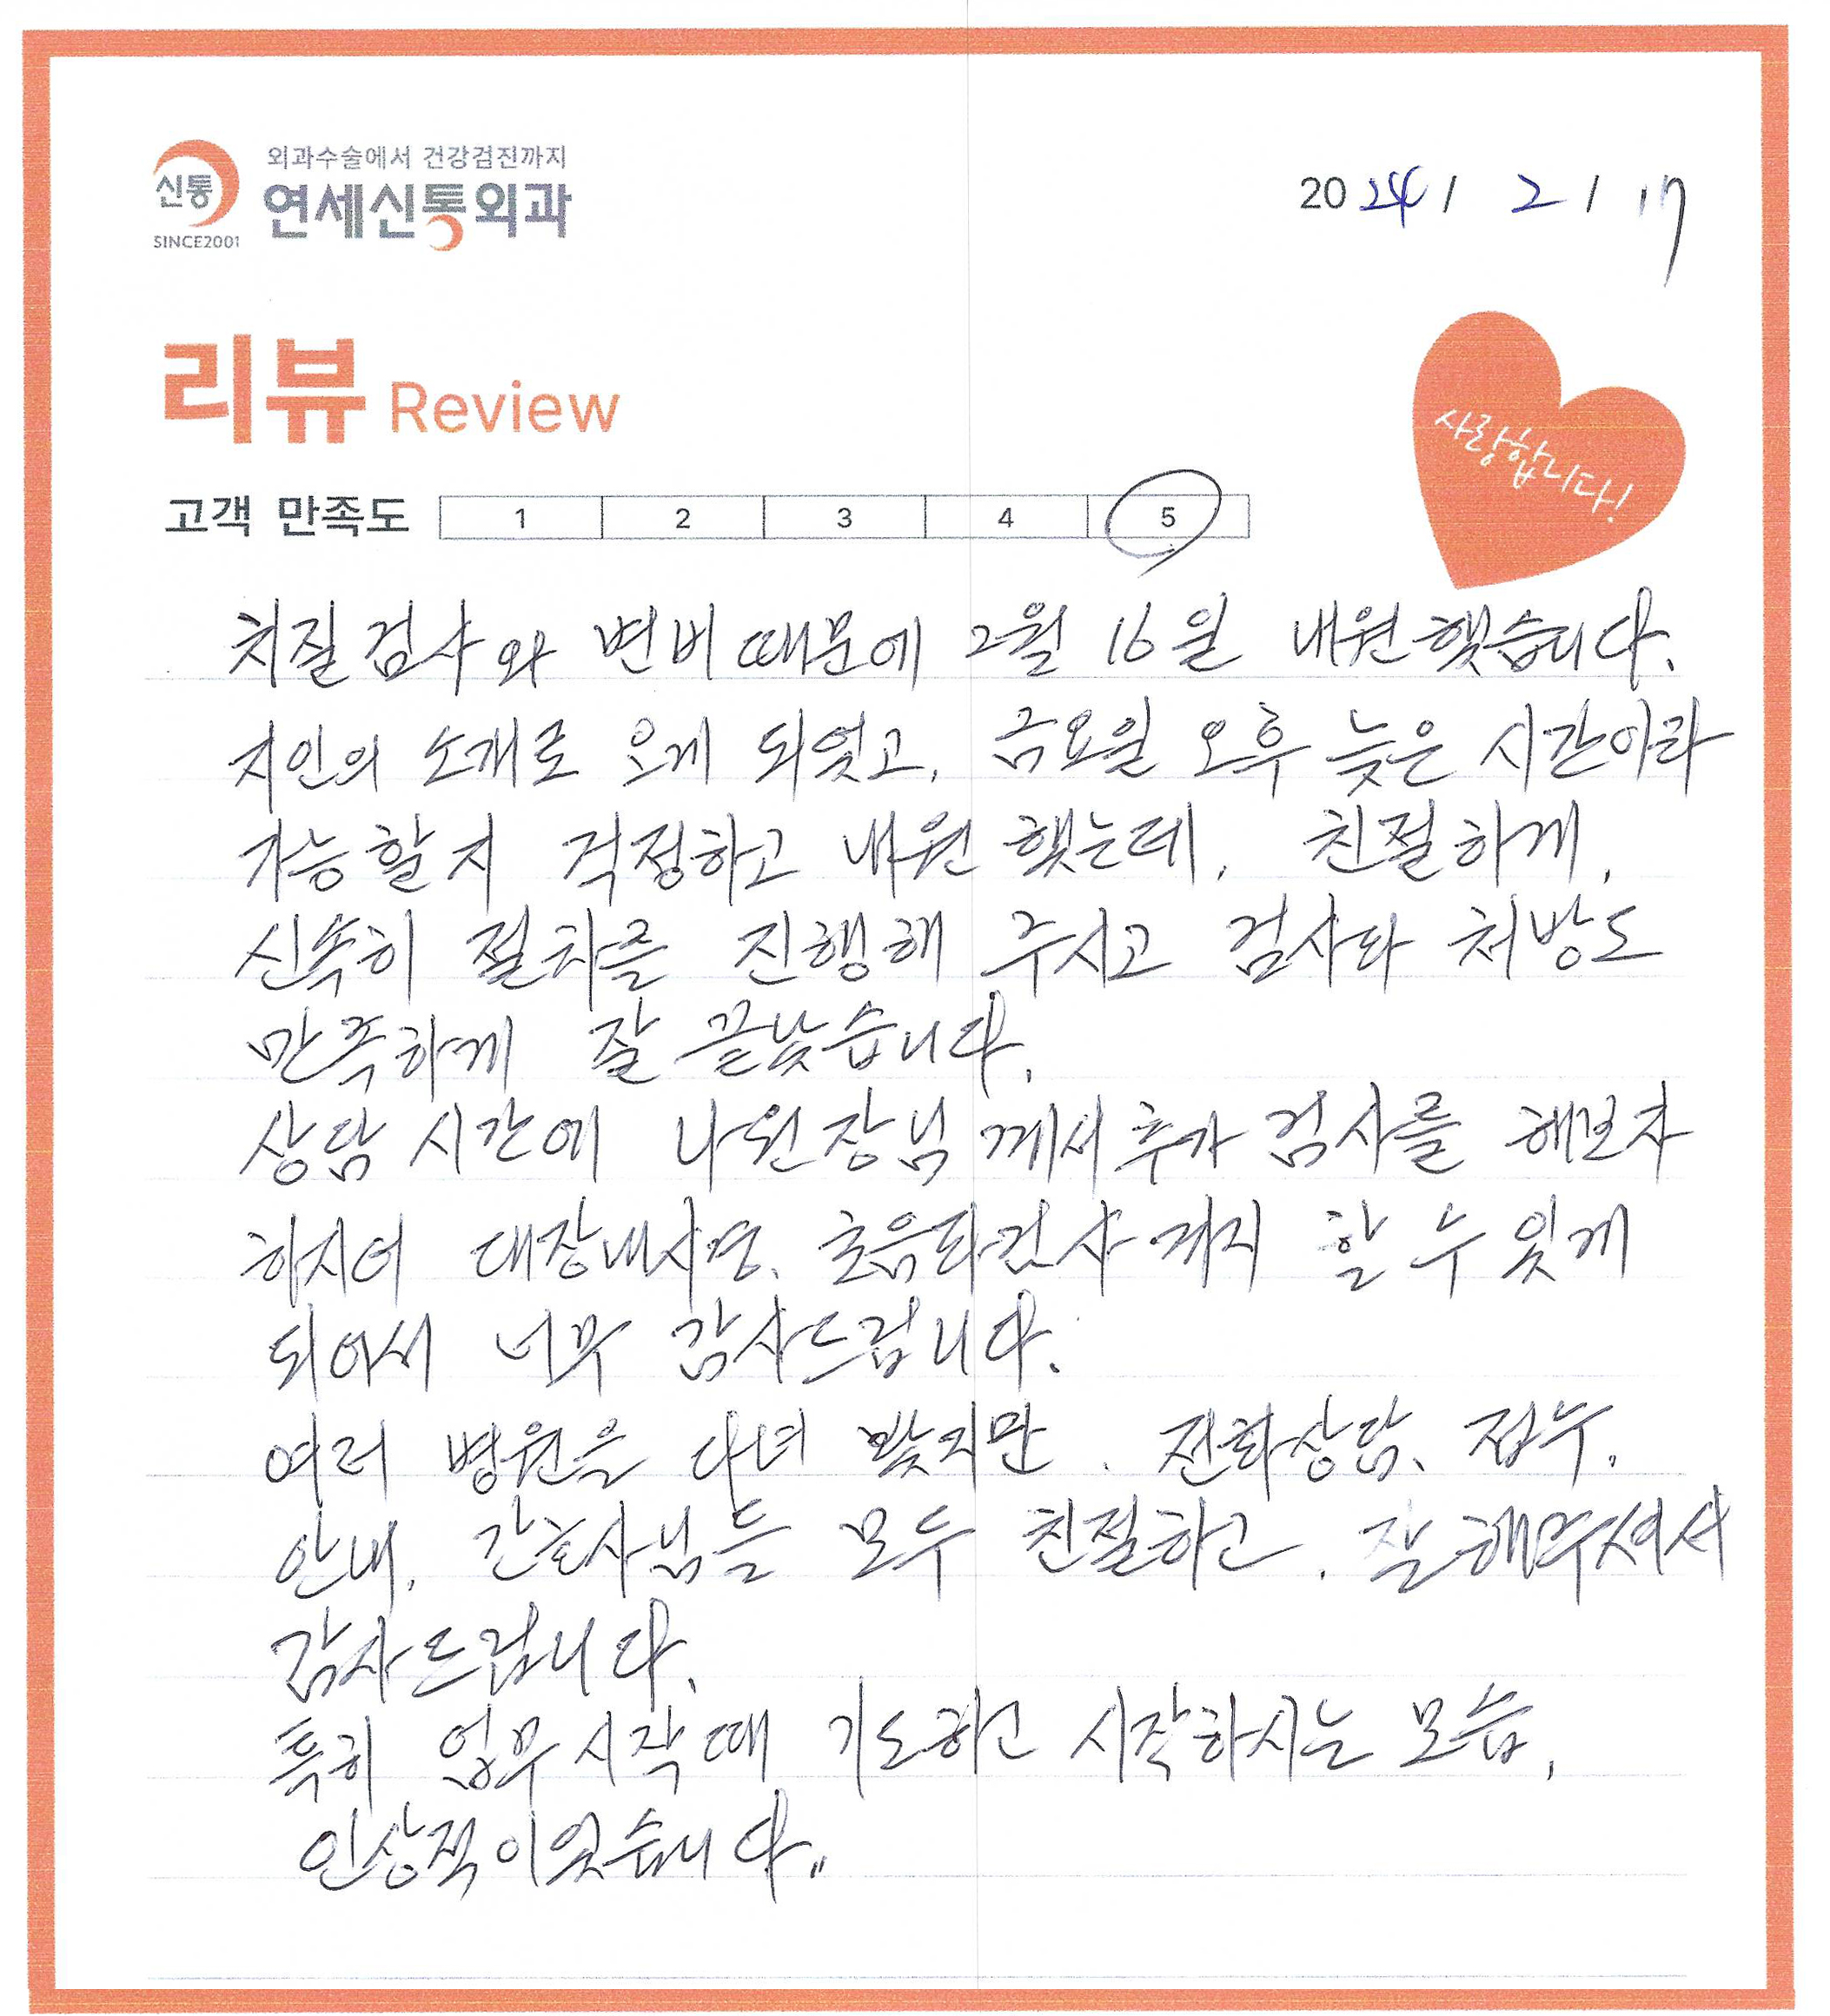 신통
SINCE2001
외과수술에서 건강검진까지
연세신통외과
2024 / 2 / 17
리뷰 Review
사랑합니다!
고객 만족도 1 2 3 4 5
치질검사와 변비때문에 2월 16일 내원했습니다.
지인의 소개로 오게 되었고, 금요일 오후 늦은 시간이라
가능할지 걱정하고 내원했는데, 친절하게,
신속히 절차를 진행해 주시고 검사와 처방도
만족하게 잘 끝났습니다.
상담시간에 나원장님께서 추가 검사를 해보자
하시어 대장내시경, 초음파검사까지 할 수 있게
되어서 너무 감사드립니다.
여러 병원을 다녀 봤지만, 전화상담, 접수,
안내, 간호사님들 모두 친절하고, 잘해주셔서
감사드립니다.
특히 업무시작때 기도하고 시작하시는 모습,
인상적이었습니다.